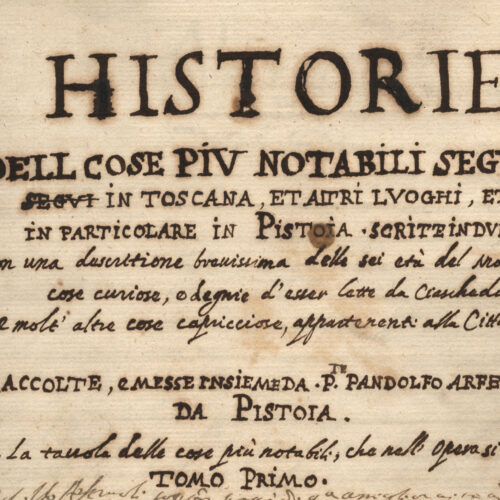 HISTORIE
DELL COSE PIV NOTABILI SEG
SEGVI IN TOSCANA, ET ALTRI LVOGHI, ET
IN PARTICOLARE IN PISTOIA. SCRITE IN DV
on una descritione breuissima delle sei età del Mo
cose curiose, e degnie d'esser lette da Ciasched
e molt' altre cose capricciose, appartenenti alla Citt
ACCOLTE, E MESSE INSIEME DA P.TE PANDOLFO ARFE
DA PISTOIA.
La tauola delle cose più notabili, che nell' opera si
TOMO PRIMO.